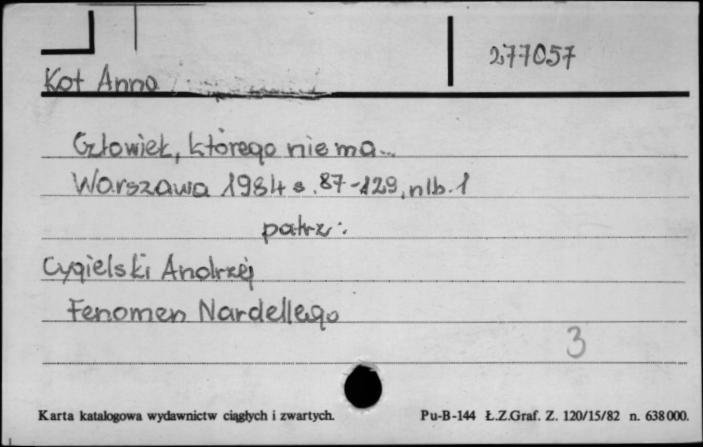 277057
Kot Anna
Człowiek, którego nie ma...
Warszawa 1984 s. 87-129, nlb. 1
patrz:
Cygielski Andrzej
Fenomen Nardellego
3
Karta katalogowa wydawnictw ciągłych i zwartych.
Pu-B-144 Ł.Z.Graf. Z. 120/15/82 n. 638000.